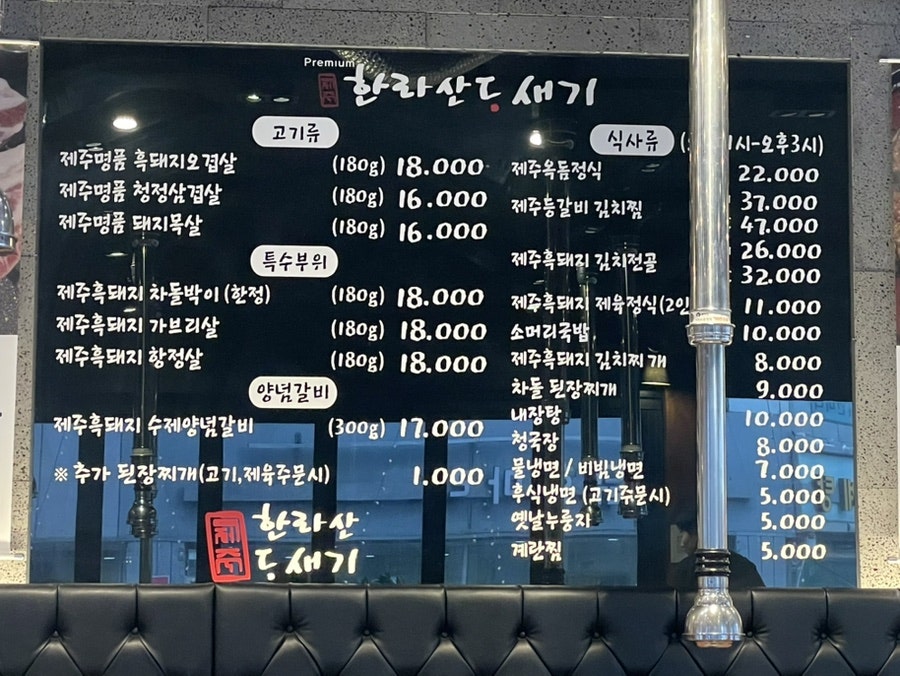 Premium
한라산 돗새기
고기류
제주명품 흑돼지오겹살 (180g) 18.000
제주명품 청정삼겹살 (180g) 16.000
제주명품 돼지목살 (180g) 16.000
특수부위
제주흑돼지 차돌박이 (한정) (180g) 18.000
제주흑돼지 가브리살 (180g) 18.000
제주흑돼지 항정살 (180g) 18.000
양념갈비
제주흑돼지 수제양념갈비 (300g) 17.000
※ 추가 된장찌개(고기,제육주문시) 1.000
한라산
돗새기
식사류 1시-오후3시)
제주옥돔정식 22.000
제주등갈비 김치찜 37.000
47.000
제주흑돼지 김치전골 26.000
32.000
제주흑돼지 제육정식(2인 11.000
소머리국밥 10.000
제주흑돼지 김치찌개 8.000
차돌 된장찌개 9.000
내장탕 10.000
청국장 8.000
물냉면 / 비빔냉면 7.000
후식냉면 (고기주문시) 5.000
옛날누룽지 5.000
계란찜 5.000